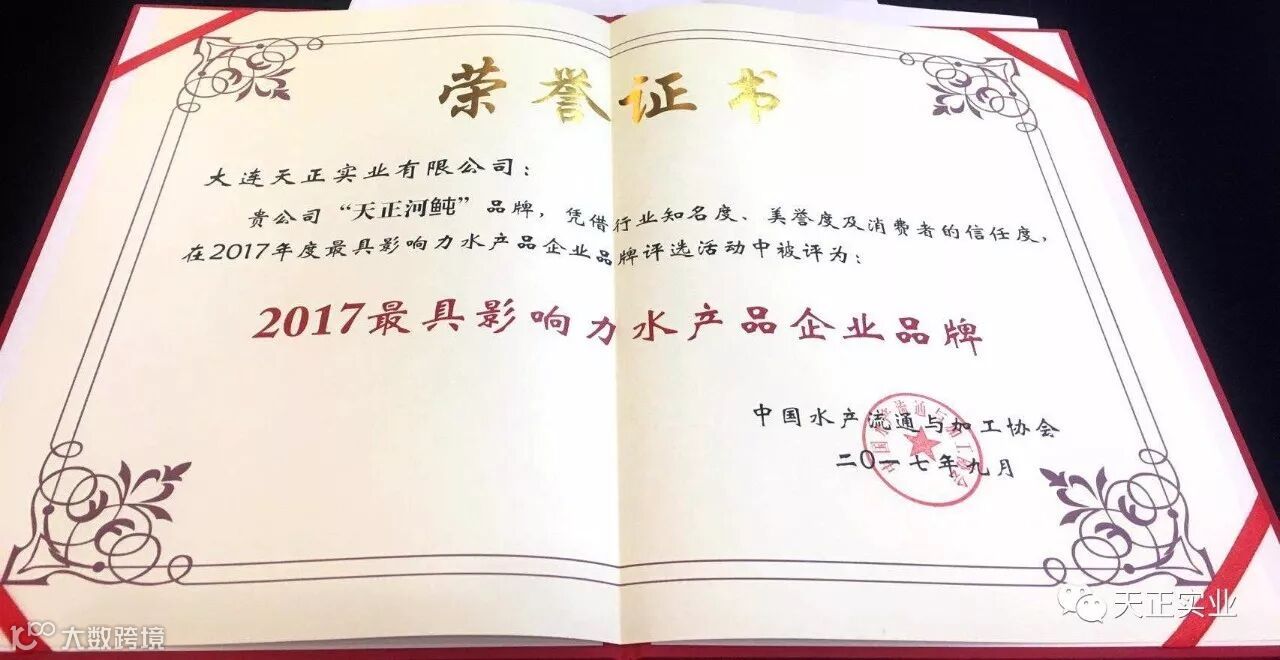 荣誉证书
大连天正实业有限公司：
贵公司“天正河鲀”品牌，凭借行业知名度、美誉度及消费者的信任度，
在2017年度最具影响力水产品企业品牌评选活动中被评为：
2017最具影响力水产品企业品牌
中国水产流通与加工协会
二〇一七年九月
中国水产流通与加工协会
天正实业
大数跨境